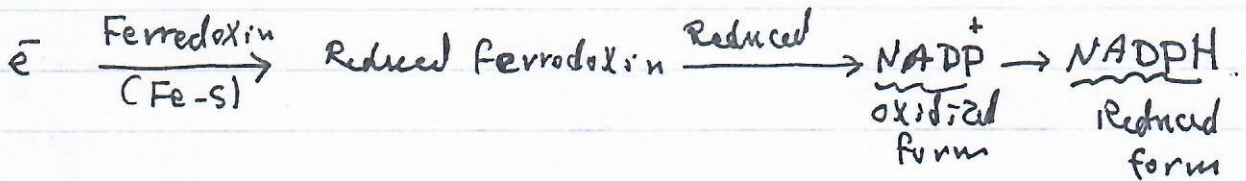 e⁻ Ferredoxin (Fe-S) → Reduced ferrodoxin Reduced → NADP⁺ → NADPH.
oxidized form Reduced form